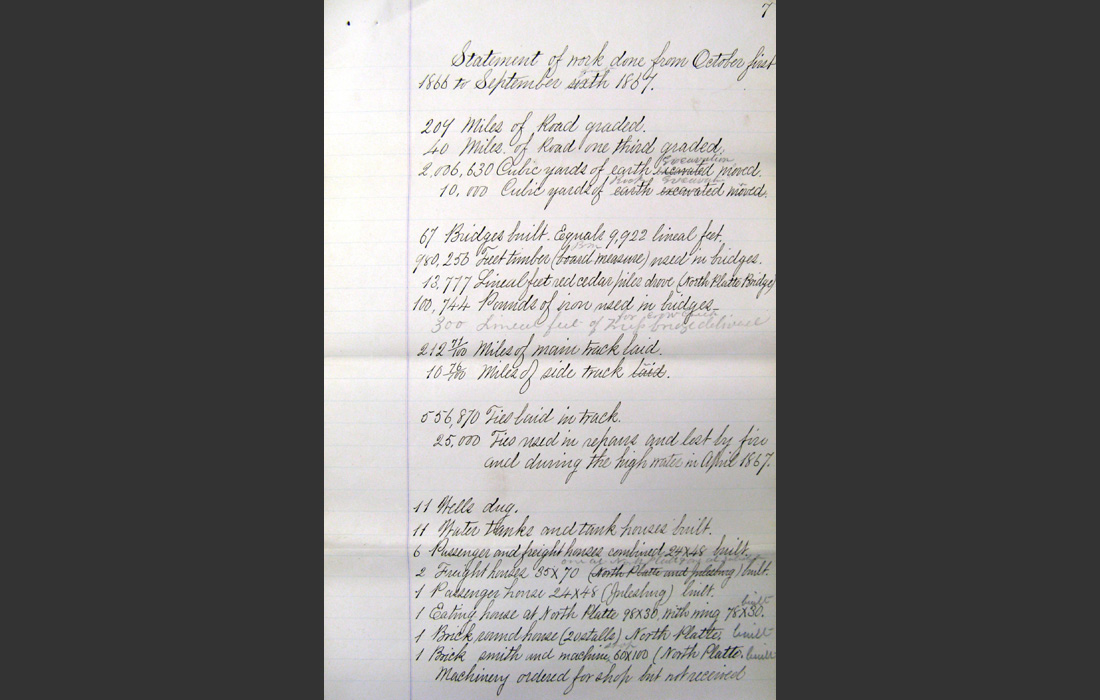 7
Statement of work done from October first
1866 to September sixth 1867.
207 Miles of Road graded.
40 Miles of Road one third graded.
Excavation
2,006,630 Cubic yards of earth excavated moved.
Rock Excavat
10,000 Cubic yards of earth excavated moved.
67 Bridges built. Equals 9,922 lineal feet.
980,256 Feet timber (board measure) used in bridges.
13,777 Lineal feet red cedar piles drove (North Platte Bridge)
100,744 Pounds of iron used in bridges
300 Lineal feet of bridge delivered
212 71/100 Miles of main track laid.
10 78/100 Miles of side track laid.
556,870 Ties laid in track.
25,000 Ties used in repairs and lost by fire
and during the high water in April 1867.
11 Wells dug.
11 Water tanks and tank houses built.
6 Passenger and freight houses combined 24x48 built.
one at
2 Freight houses 35x70 (North Platte and Julesburg) built.
1 Passenger house 24x48 (Julesburg) built.
built
1 Eating house at North Platte 98x30, with wing 78x30.
1 Brick round house (20 stalls) North Platte. built
1 Brick smith and machine 60x100 (North Platte. built
Machinery ordered for shop but not received